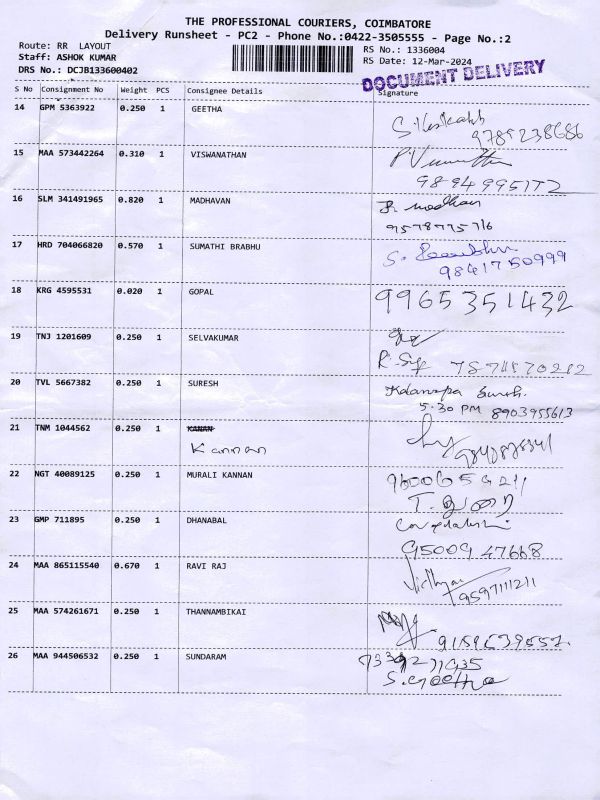 THE PROFESSIONAL COURIERS, COIMBATORE
Delivery Runsheet - PC2 - Phone No.:0422-3505555 - Page No.:2
Route: RR LAYOUT
Staff: ASHOK KUMAR
DRS No.: DCJB133600402
RS No.: 1336004
RS Date: 12-Mar-2024
DOCUMENT DELIVERY
S No Consignment No Weight PCS Consignee Details Signature
14 GPM 5363922 0.250 1 GEETHA
9789238686
15 MAA 573442264 0.310 1 VISWANATHAN
16 SLM 341491965 0.820 1 MADHAVAN
17 HRD 704066820 0.570 1 SUMATHI BRABHU
9841750999
18 KRG 4595531 0.020 1 GOPAL
9965351432
19 TNJ 1201609 0.250 1 SELVAKUMAR
20 TVL 5667382 0.250 1 SURESH
5.30 PM 8903955613
21 TNM 1044562 0.250 1 KANAN
Kannan
22 NGT 40089125 0.250 1 MURALI KANNAN
23 GMP 711895 0.250 1 DHANABAL
95009 47668
24 MAA 865115540 0.670 1 RAVI RAJ
9597111211
25 MAA 574261671 0.250 1 THANNAMBIKAI
26 MAA 944506532 0.250 1 SUNDARAM
S. Geetha